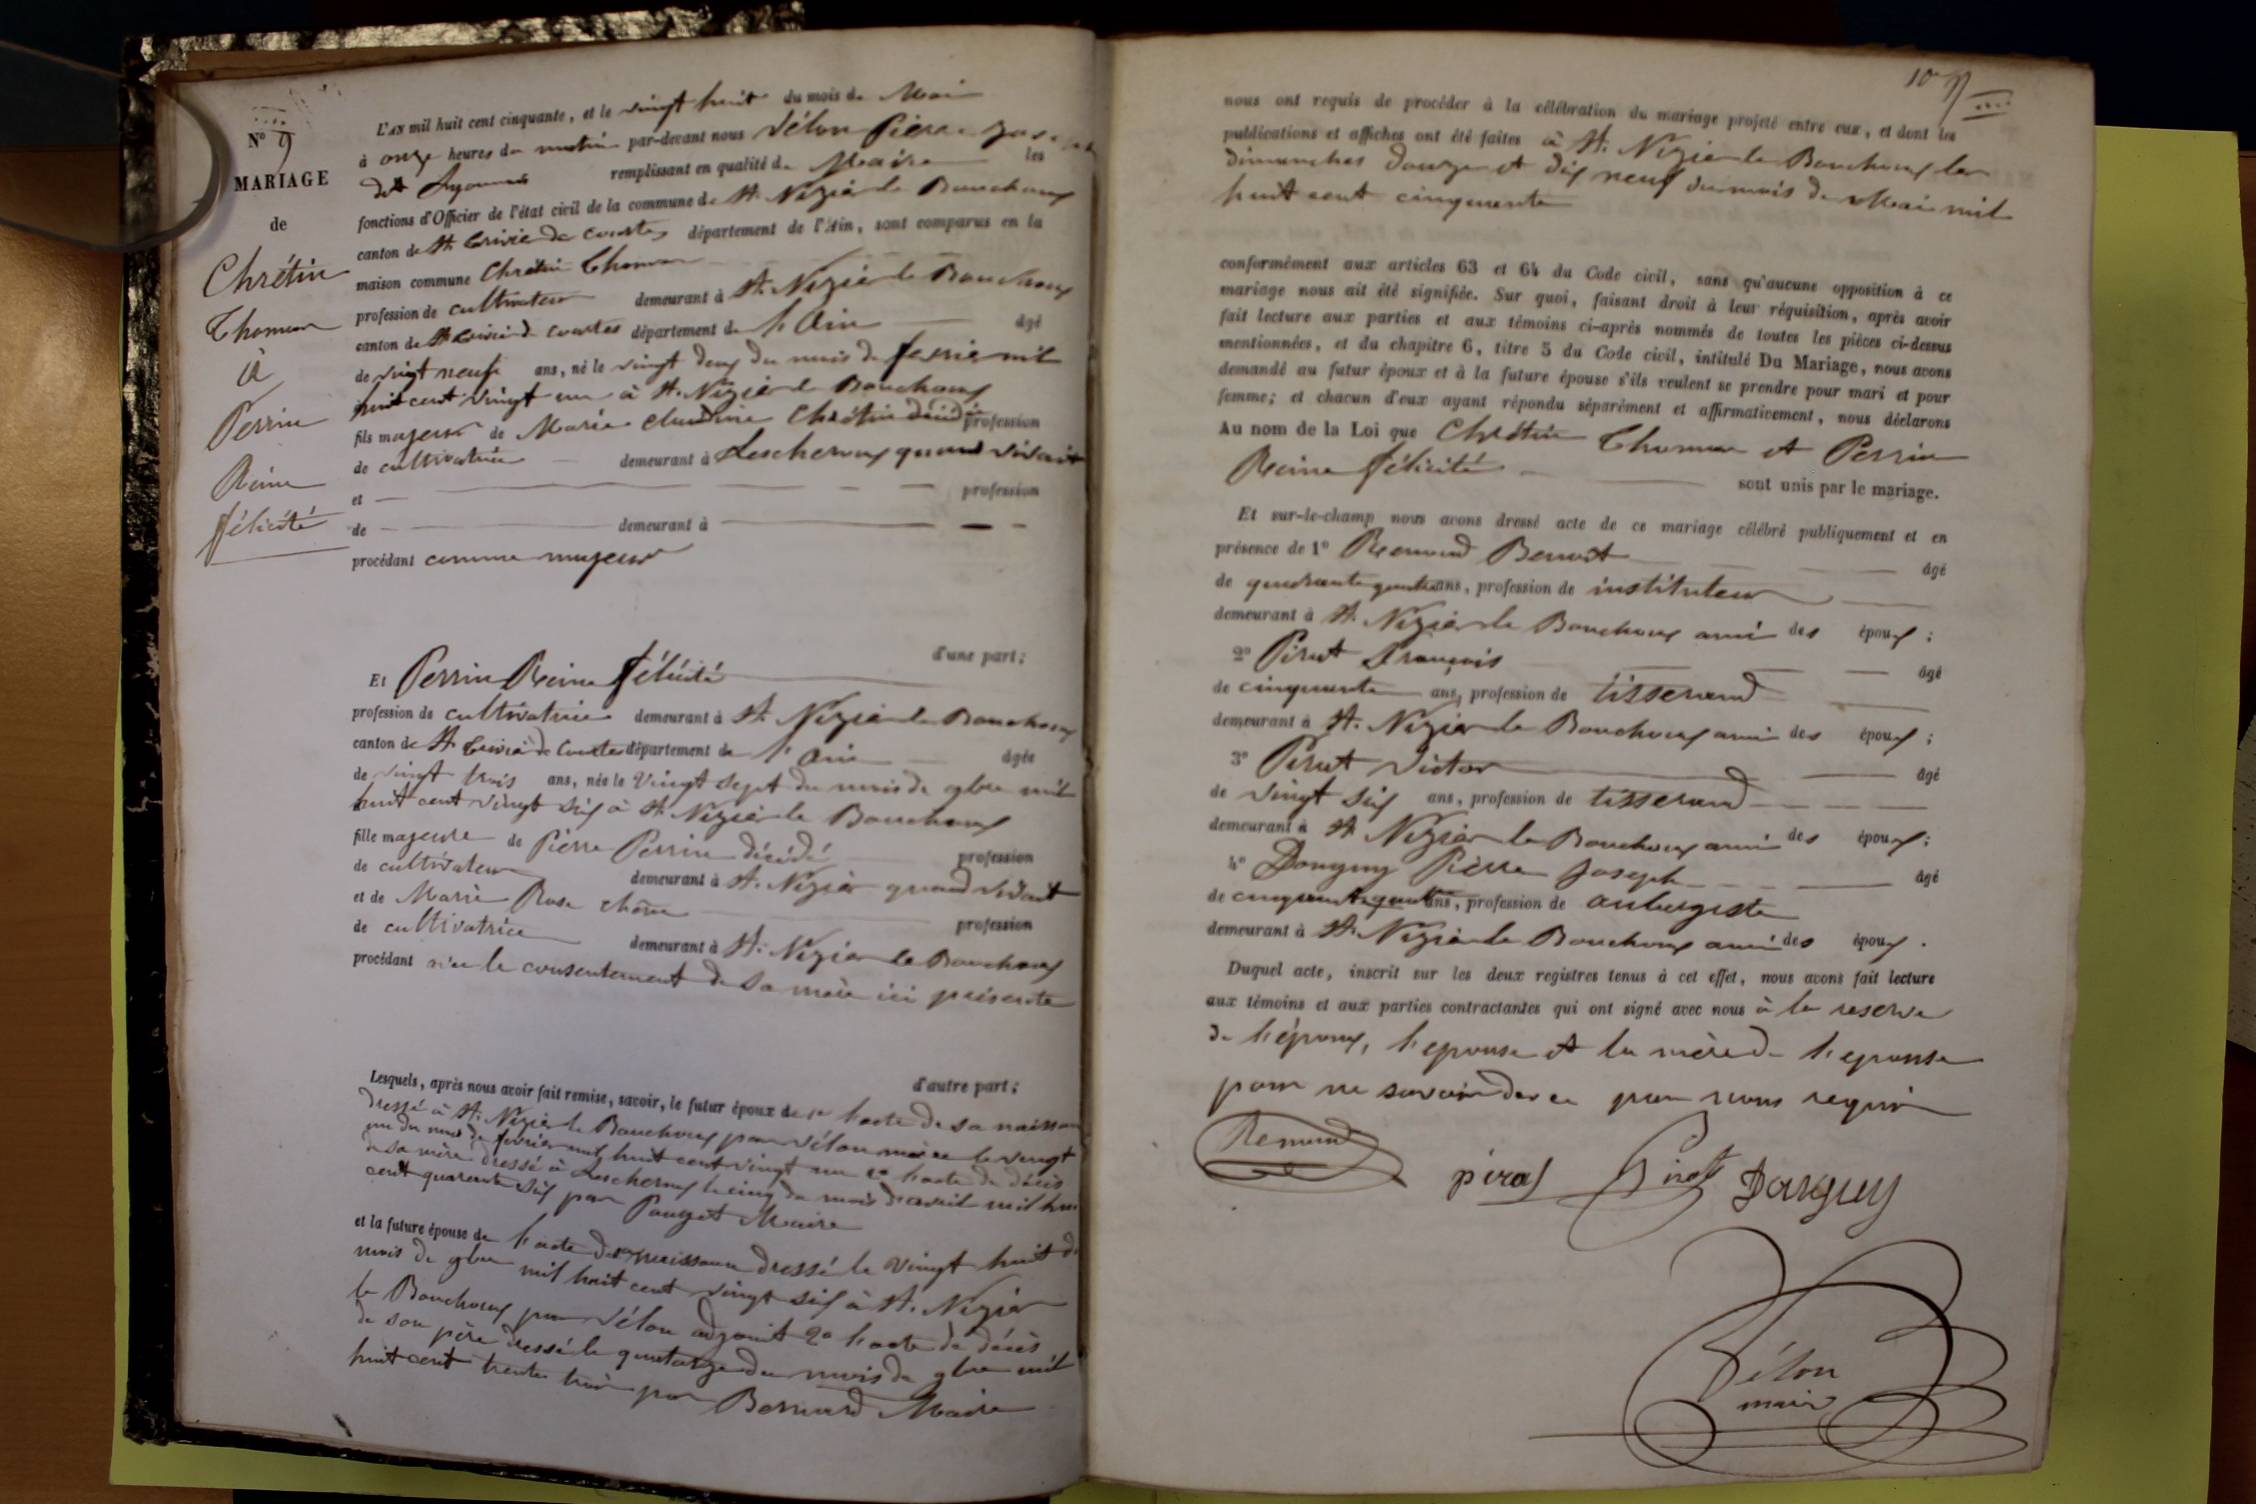 N° 9
MARIAGE
de
Chrétin
Thomas
à
Perrin
Reine
félicité
L'AN mil huit cent cinquante, et le vingt huit du mois de Mai
à onze heures du matin par-devant nous Vélon Pierre
remplissant en qualité de Maire les
fonctions d'Officier de l'état civil de la commune de St. Nizier le Bouchoux
canton de St. Trivier de Courtes département de l'Ain, sont comparus en la
maison commune Chrétin Thomas
profession de cultivateur demeurant à St. Nizier le Bouchoux
canton de St Trivier de Courtes département de l'Ain âgé
de vingt neuf ans, né le vingt deux du mois de février mil
huit cent vingt un à St. Nizier le Bouchoux
fils majeur de Marie Claudine Chrétin décédée profession
de cultivatrice demeurant à Lescheroux quand vivait
et profession
de demeurant à
procédant comme majeur
d'une part;
Et Perrin Reine félicité
profession de cultivatrice demeurant à St. Nizier le Bouchoux
canton de St Trivier de Courtes département de l'Ain âgée
de vingt trois ans, née le vingt sept du mois de 9bre mil
huit cent vingt six à St. Nizier le Bouchoux
fille majeure de Pierre Perrin décédé profession
de cultivateur demeurant à St. Nizier quand vivait
et de Marie Rose chêne profession
de cultivatrice demeurant à St. Nizier le Bouchoux
procédant avec le consentement de sa mère ici présente
d'autre part;
Lesquels, après nous avoir fait remise, savoir, le futur époux de 1° l'acte de sa naissance
dressé à St. Nizier le Bouchoux par Vélon maire le vingt
un du mois de février mil huit cent vingt un 2° l'acte de décès
de sa mère dressé à Lescheroux le cinq du mois d'avril mil huit
cent quarante six par Pouget Maire
et la future épouse de l'acte de sa naissance dressé le vingt huit du
mois de 9bre mil huit cent vingt six à St. Nizier
le Bouchoux par Vélon adjoint 2° l'acte de décès
de son père dressé le quatorze du mois de 9bre mil
huit cent trente trois par Bernard Maire
10
nous ont requis de procéder à la célébration du mariage projeté entre eux, et dont les
publications et affiches ont été faites à St. Nizier le Bouchoux les
dimanches douze et dix neuf du mois de Mai mil
huit cent cinquante
conformément aux articles 63 et 64 du Code civil, sans qu'aucune opposition à ce
mariage nous ait été signifiée. Sur quoi, faisant droit à leur réquisition, après avoir
fait lecture aux parties et aux témoins ci-après nommés de toutes les pièces ci-dessus
mentionnées, et du chapitre 6, titre 5 du Code civil, intitulé Du Mariage, nous avons
demandé au futur époux et à la future épouse s'ils veulent se prendre pour mari et pour
femme; et chacun d'eux ayant répondu séparément et affirmativement, nous déclarons
Au nom de la Loi que Chrétin Thomas et Perrin
Reine félicité sont unis par le mariage.
Et sur-le-champ nous avons dressé acte de ce mariage célébré publiquement et en
présence de 1° Remond Benoit âgé
de quarante quatre ans, profession de instituteur
demeurant à St. Nizier le Bouchoux ami des époux;
2° Pirat François âgé
de cinquante ans, profession de tisserand
demeurant à St. Nizier le Bouchoux ami des époux;
3° Pirat Victor âgé
de vingt six ans, profession de tisserand
demeurant à St Nizier le Bouchoux ami des époux;
4° Donguy Pierre Joseph âgé
de cinquante quatre ans, profession de aubergiste
demeurant à St. Nizier le Bouchoux ami des époux.
Duquel acte, inscrit sur les deux registres tenus à cet effet, nous avons fait lecture
aux témoins et aux parties contractantes qui ont signé avec nous à la reserve
de l'époux, l'epouse et la mère de l'epouse
pour ne savoir de ce par nous requis
Remond
pirat Pirat Donguy
Vélon
maire